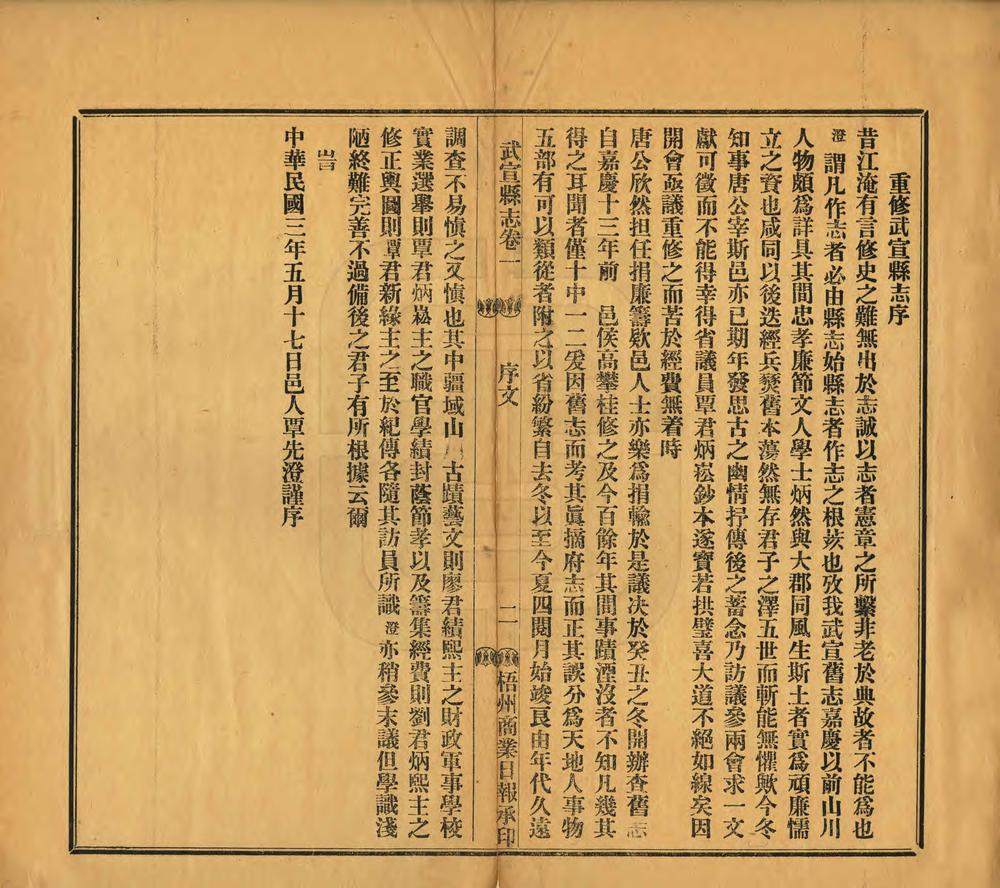 重修武宣縣志序
昔江淹有言修史之難無出於志誠以志者憲章之所繫非老於典故者不能爲也
澄謂凡作志者必由縣志始縣志者作志之根荄也攷我武宣舊志嘉慶以前山川
人物頗爲詳具其間忠孝廉節文人學士炳然與大郡同風生斯土者實爲頑廉懦
立之資也咸同以後迭經兵燹舊本蕩然無存君子之澤五世而斬能無懼歟今冬
知事唐公宰斯邑亦已期年發思古之幽情抒傳後之蓄念乃訪議參兩會求一文
獻可徵而不能得幸得省議員覃君炳崧鈔本遂寶若拱璧喜大道不絕如線矣因
開會亟議重修之而苦於經費無着時
唐公欣然担任捐廉籌欵邑人士亦樂爲捐輸於是議決於癸丑之冬開辦查舊志
自嘉慶十三年前 邑侯高攀桂修之及今百餘年其間事蹟湮沒者不知凡幾其
得之耳聞者僅十中一二爰因舊志而考其眞摘府志而正其誤分爲天地人事物
五部有可以類從者附之以省紛繁自去冬以至今夏四閱月始竣良由年代久遠
武宣縣志卷一 序文 二 梧州商業日報承印
調查不易愼之又愼也其中疆域山川古蹟藝文則廖君績熙主之財政軍事學校
實業選舉則覃君炳崧主之職官學績封蔭節孝以及籌集經費則劉君炳熙主之
修正輿圖則覃君新緣主之至於紀傳各隨其訪員所識澄亦稍參末議但學識淺
陋終難完善不過備後之君子有所根據云爾
旹
中華民國三年五月十七日邑人覃先澄謹序